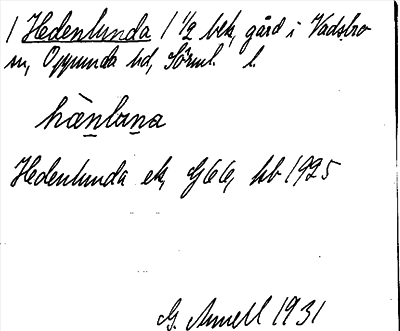 1 Hedenlunda 1 1/2 bek, gård i Vadsbro
sn, Oppunda hd, Sörml. l.
hæ̀nlana
Hedenlunda ek, G66, kb 1925
G. Annell 1931